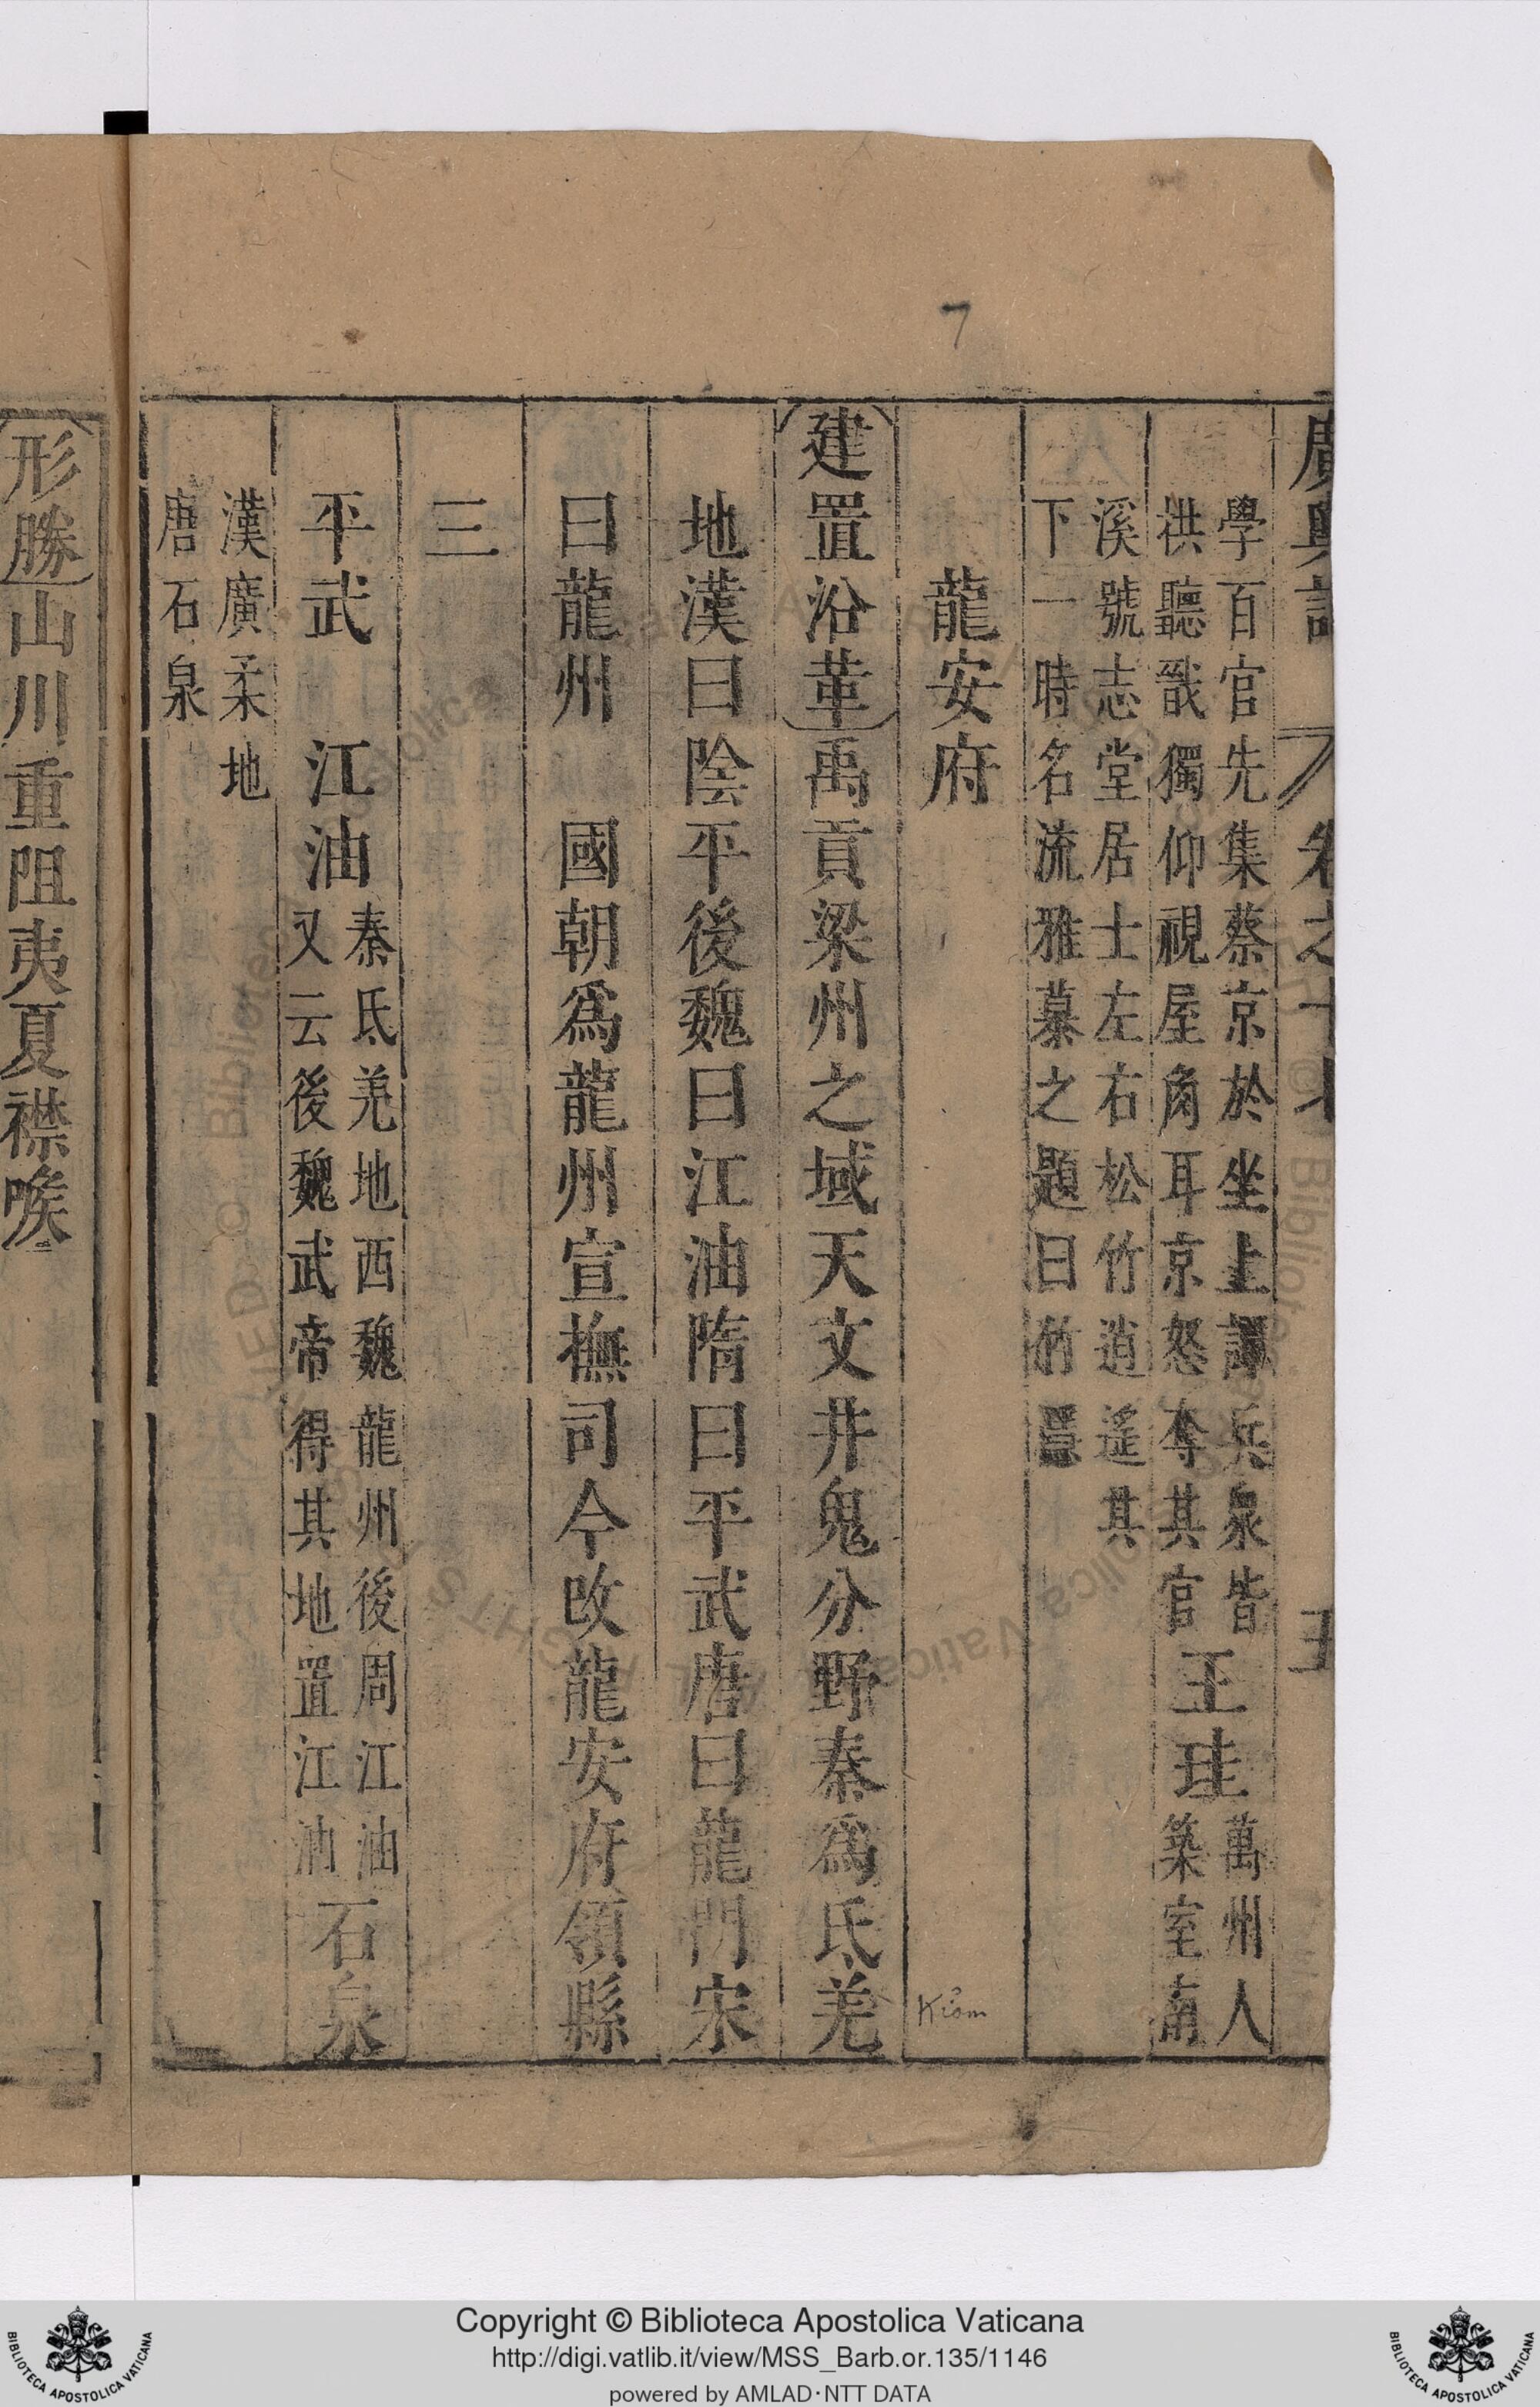 7
廣輿記 卷之十七 五
學百官先集蔡京於坐上譚兵衆皆
拱聽戩獨仰視屋角耳京怒奪其官
王珪
萬州人
築室南
溪號志堂居士左右松竹逍遙其
下一時名流雅慕之題曰
龍安府
Kiom
建置沿革禹貢梁州之域天文井鬼分野秦爲氐羌
地漢曰陰平後魏曰江油隋曰平武唐曰龍門宋
曰龍州 國朝爲龍州宣撫司今改龍安府領縣
三
平武 江油
秦氐羌地西魏龍州後周江油
又云後魏武帝得其地置江油
石泉
漢廣柔地
唐石泉
形勝山川重阻夷夏襟喉
Copyright © Biblioteca Apostolica Vaticana
http://digi.vatlib.it/view/MSS_Barb.or.135/1146
powered by AMLAD·NTT DATA
BIBLIOTECA APOSTOLICA VATICANA
BIBLIOTECA APOSTOLICA VATICANA